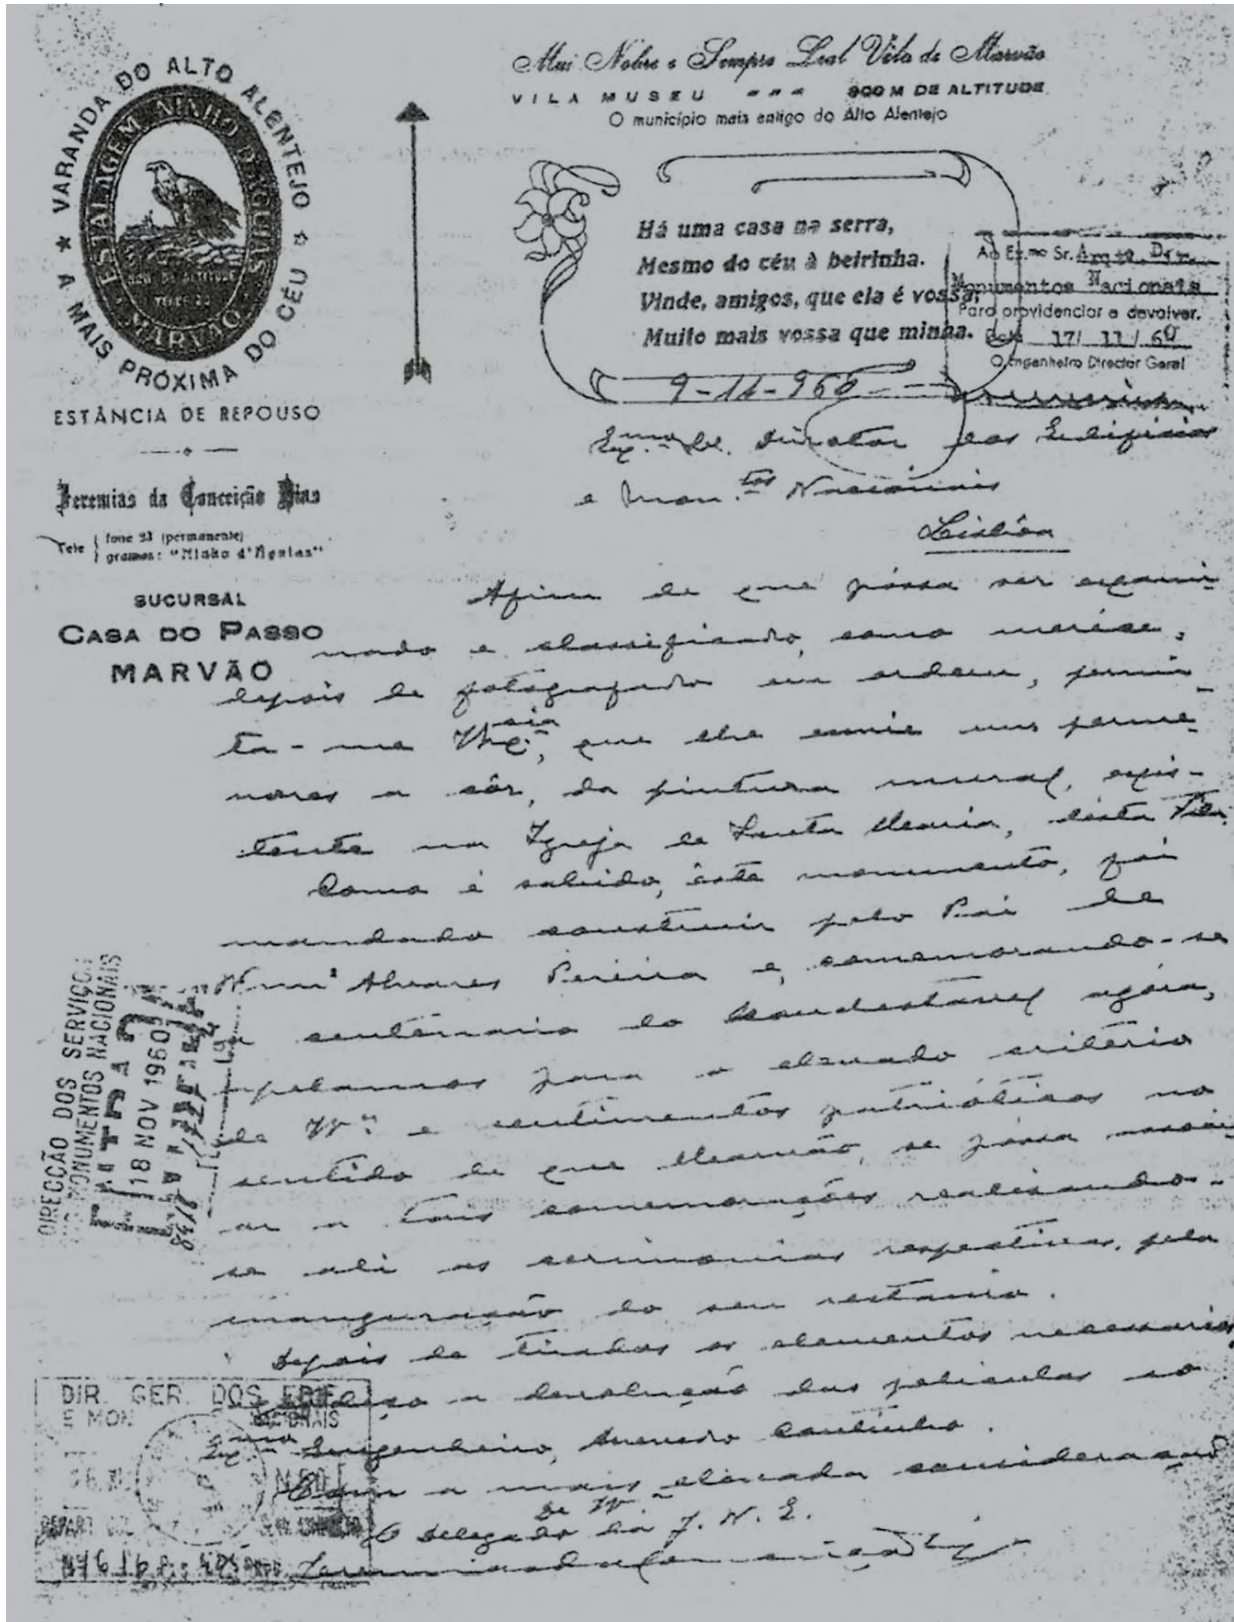 Mui Nobre e Sempre Leal Vila de Marvão
VILA MUSEU 900 M DE ALTITUDE
O município mais antigo do Alto Alentejo
★ VARANDA DO ALTO ALENTEJO ★
A MAIS PRÓXIMA DO CÉU
ESTALAGEM NINHO D'AGUIAS
MARVÃO
ESTÂNCIA DE REPOUSO
Jeremias da Conceição Dias
Tele { fone 93 (permanente)
gramas: "Ninho d'Águias"
SUCURSAL
CASA DO PASSO
MARVÃO
Há uma casa na serra,
Mesmo do céu à beirinha.
Vinde, amigos, que ela é vossa,
Muito mais vossa que minha.
Ao Ex.mo Sr. Arqto. Dir.
Monumentos Nacionais
Para providenciar e devolver.
17/ 11/ 60
O Engenheiro Director Geral
9-11-960
Exmo. Sr. Director dos Edificios
e Mon.tos Nacionais
Lisbôa
Afim de que póssa ser exami-
nado e classificado, como meréce,
depois de fotografado em ordem, permi-
ta-me que lhe envie uns porme-
nores a côr, da pintura mural, exis-
tente na Igreja de Santa Maria, désta Vila.
Como é sabido, êste monumento, foi
mandado construir pelo Pai de
Nun' Alvares Pereira e, comemorando-se
o centenario do Condestavel agóra,
apelamos para o elevado critério
de V.ª e sentimentos patrióticos no
sentido de que Marvão, se póssa associ-
ar a tais comemorações realisando-
se ali as cerimonias respectivas, pela
inauguração do seu restauro.
Depois de tirados os elementos necessarios,
peço a devolução das peliculas ao
Exmo. Engenheiro, Azevedo Coutinho.
Com a mais elevada consideração
De V.ª
O Delegado da J. N. E.
Jeremias da Conceição Dias
DIRECÇÃO DOS SERVIÇOS
DOS MONUMENTOS NACIONAIS
ENTRADA
18 NOV 1960
DIR. GER. DOS EDIF.
E MON. NACIONAIS